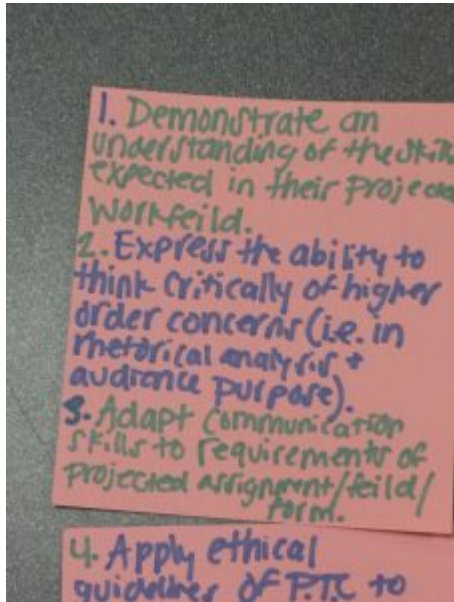 1. Demonstrate an
understanding of the skills
expected in their projected
workfeild.
2. Express the ability to
think critically of higher
order concerns (i.e. in
rhetorical analysis +
audience purpose).
3. Adapt communication
skills to requirements of
projected assignment/feild/
form.
4. Apply ethical
guidelines of P.T.C to